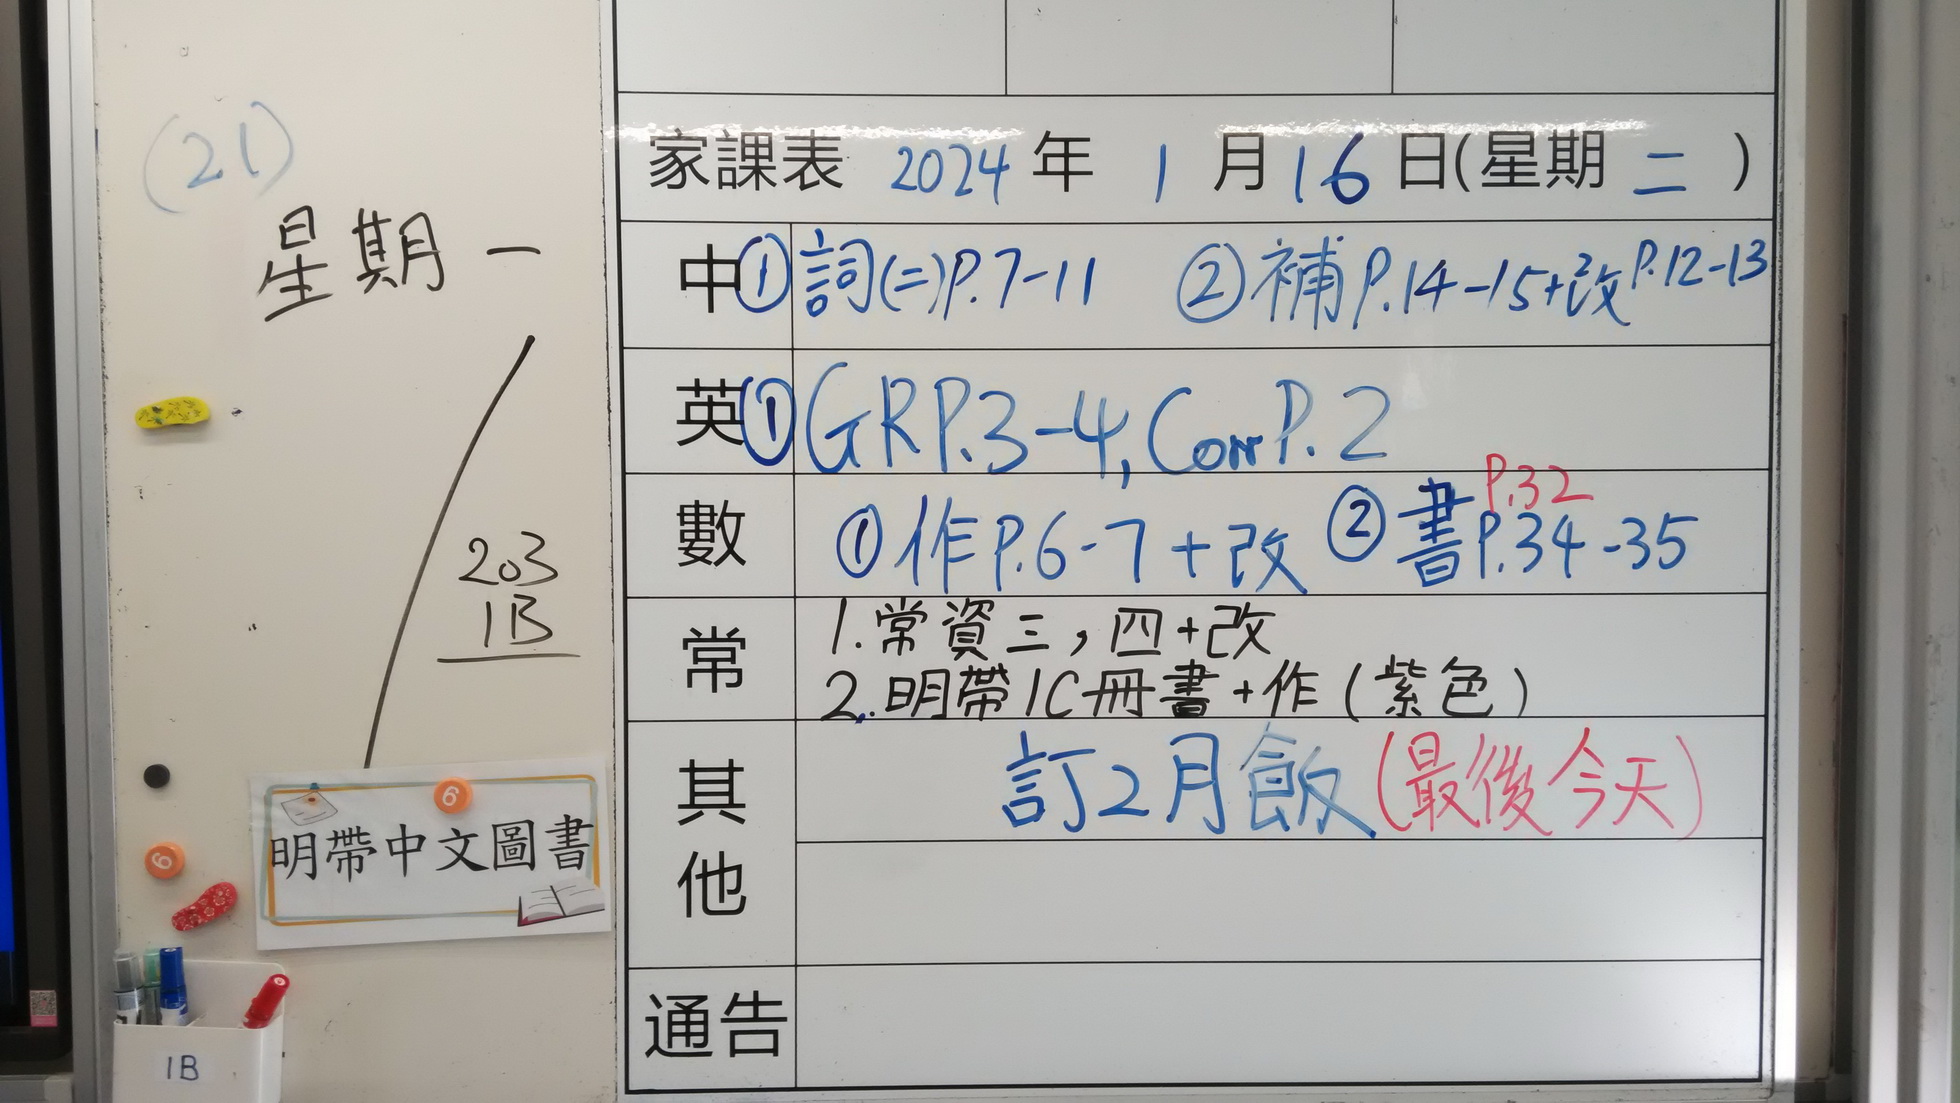 (21)
星期一
203
1B
明帶中文圖書
6
6
1B
家課表 2024年 1月16日(星期二)
中 ①詞(二)P.7-11 ②補P.14-15+改P.12-13
英 ①GR P.3-4, Corr P.2
數 ①作P.6-7+改 ②書P.32 P.34-35
常 1.常資三,四+改
2.明帶1C冊書+作(紫色)
其他 訂2月飯(最後今天)
通告